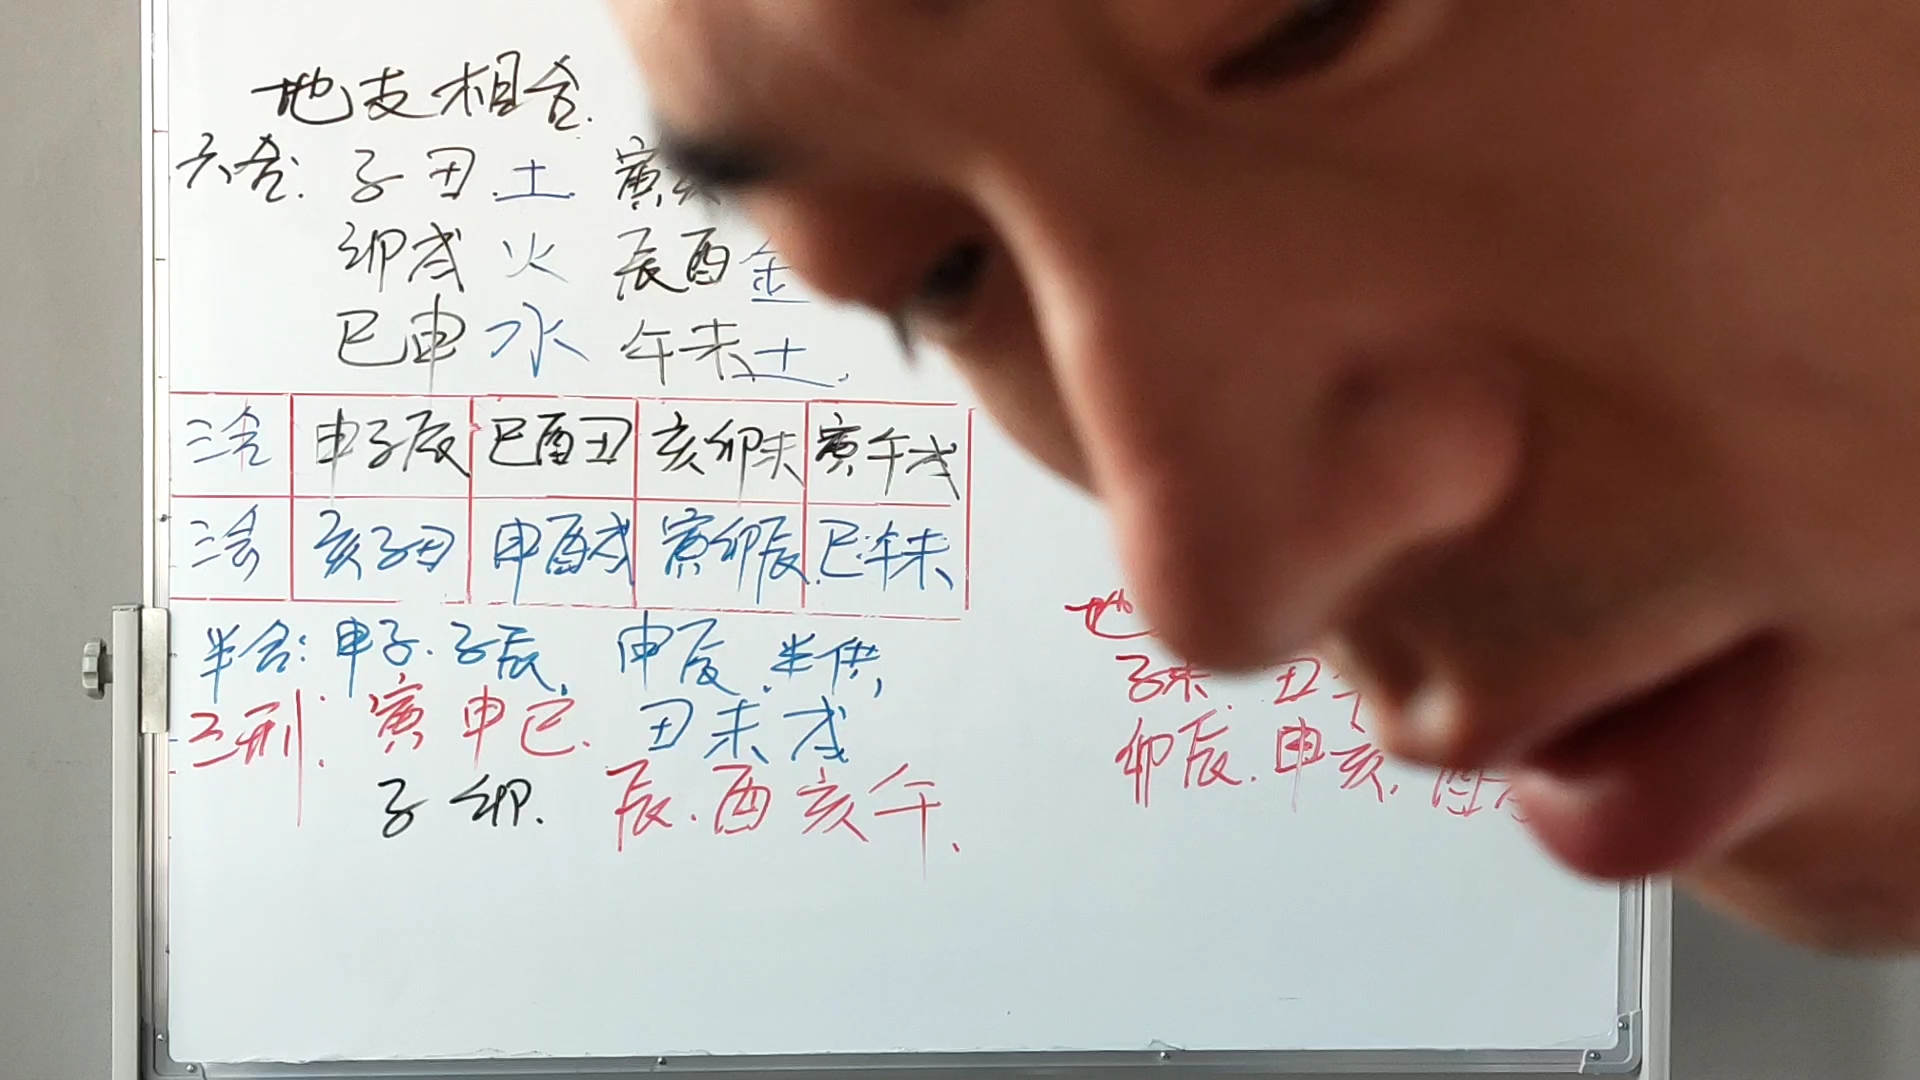 地支相合.
六合: 子丑.土. 寅
卯戌 火 辰酉金
巳申 水 午未土.
三合 申子辰 巳酉丑 亥卯未 寅午戌
三会 亥子丑 申酉戌 寅卯辰 巳午未
半合: 申子. 子辰, 申辰. 半供,
三刑: 寅申巳. 丑未戌
子卯. 辰.酉亥午.
地
子未. 丑午
卯辰. 申亥. 酉